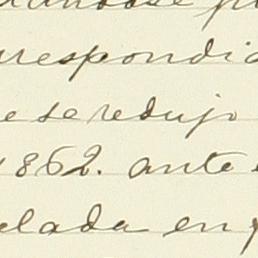 respondi
e se redujo
1862. ante
elada en